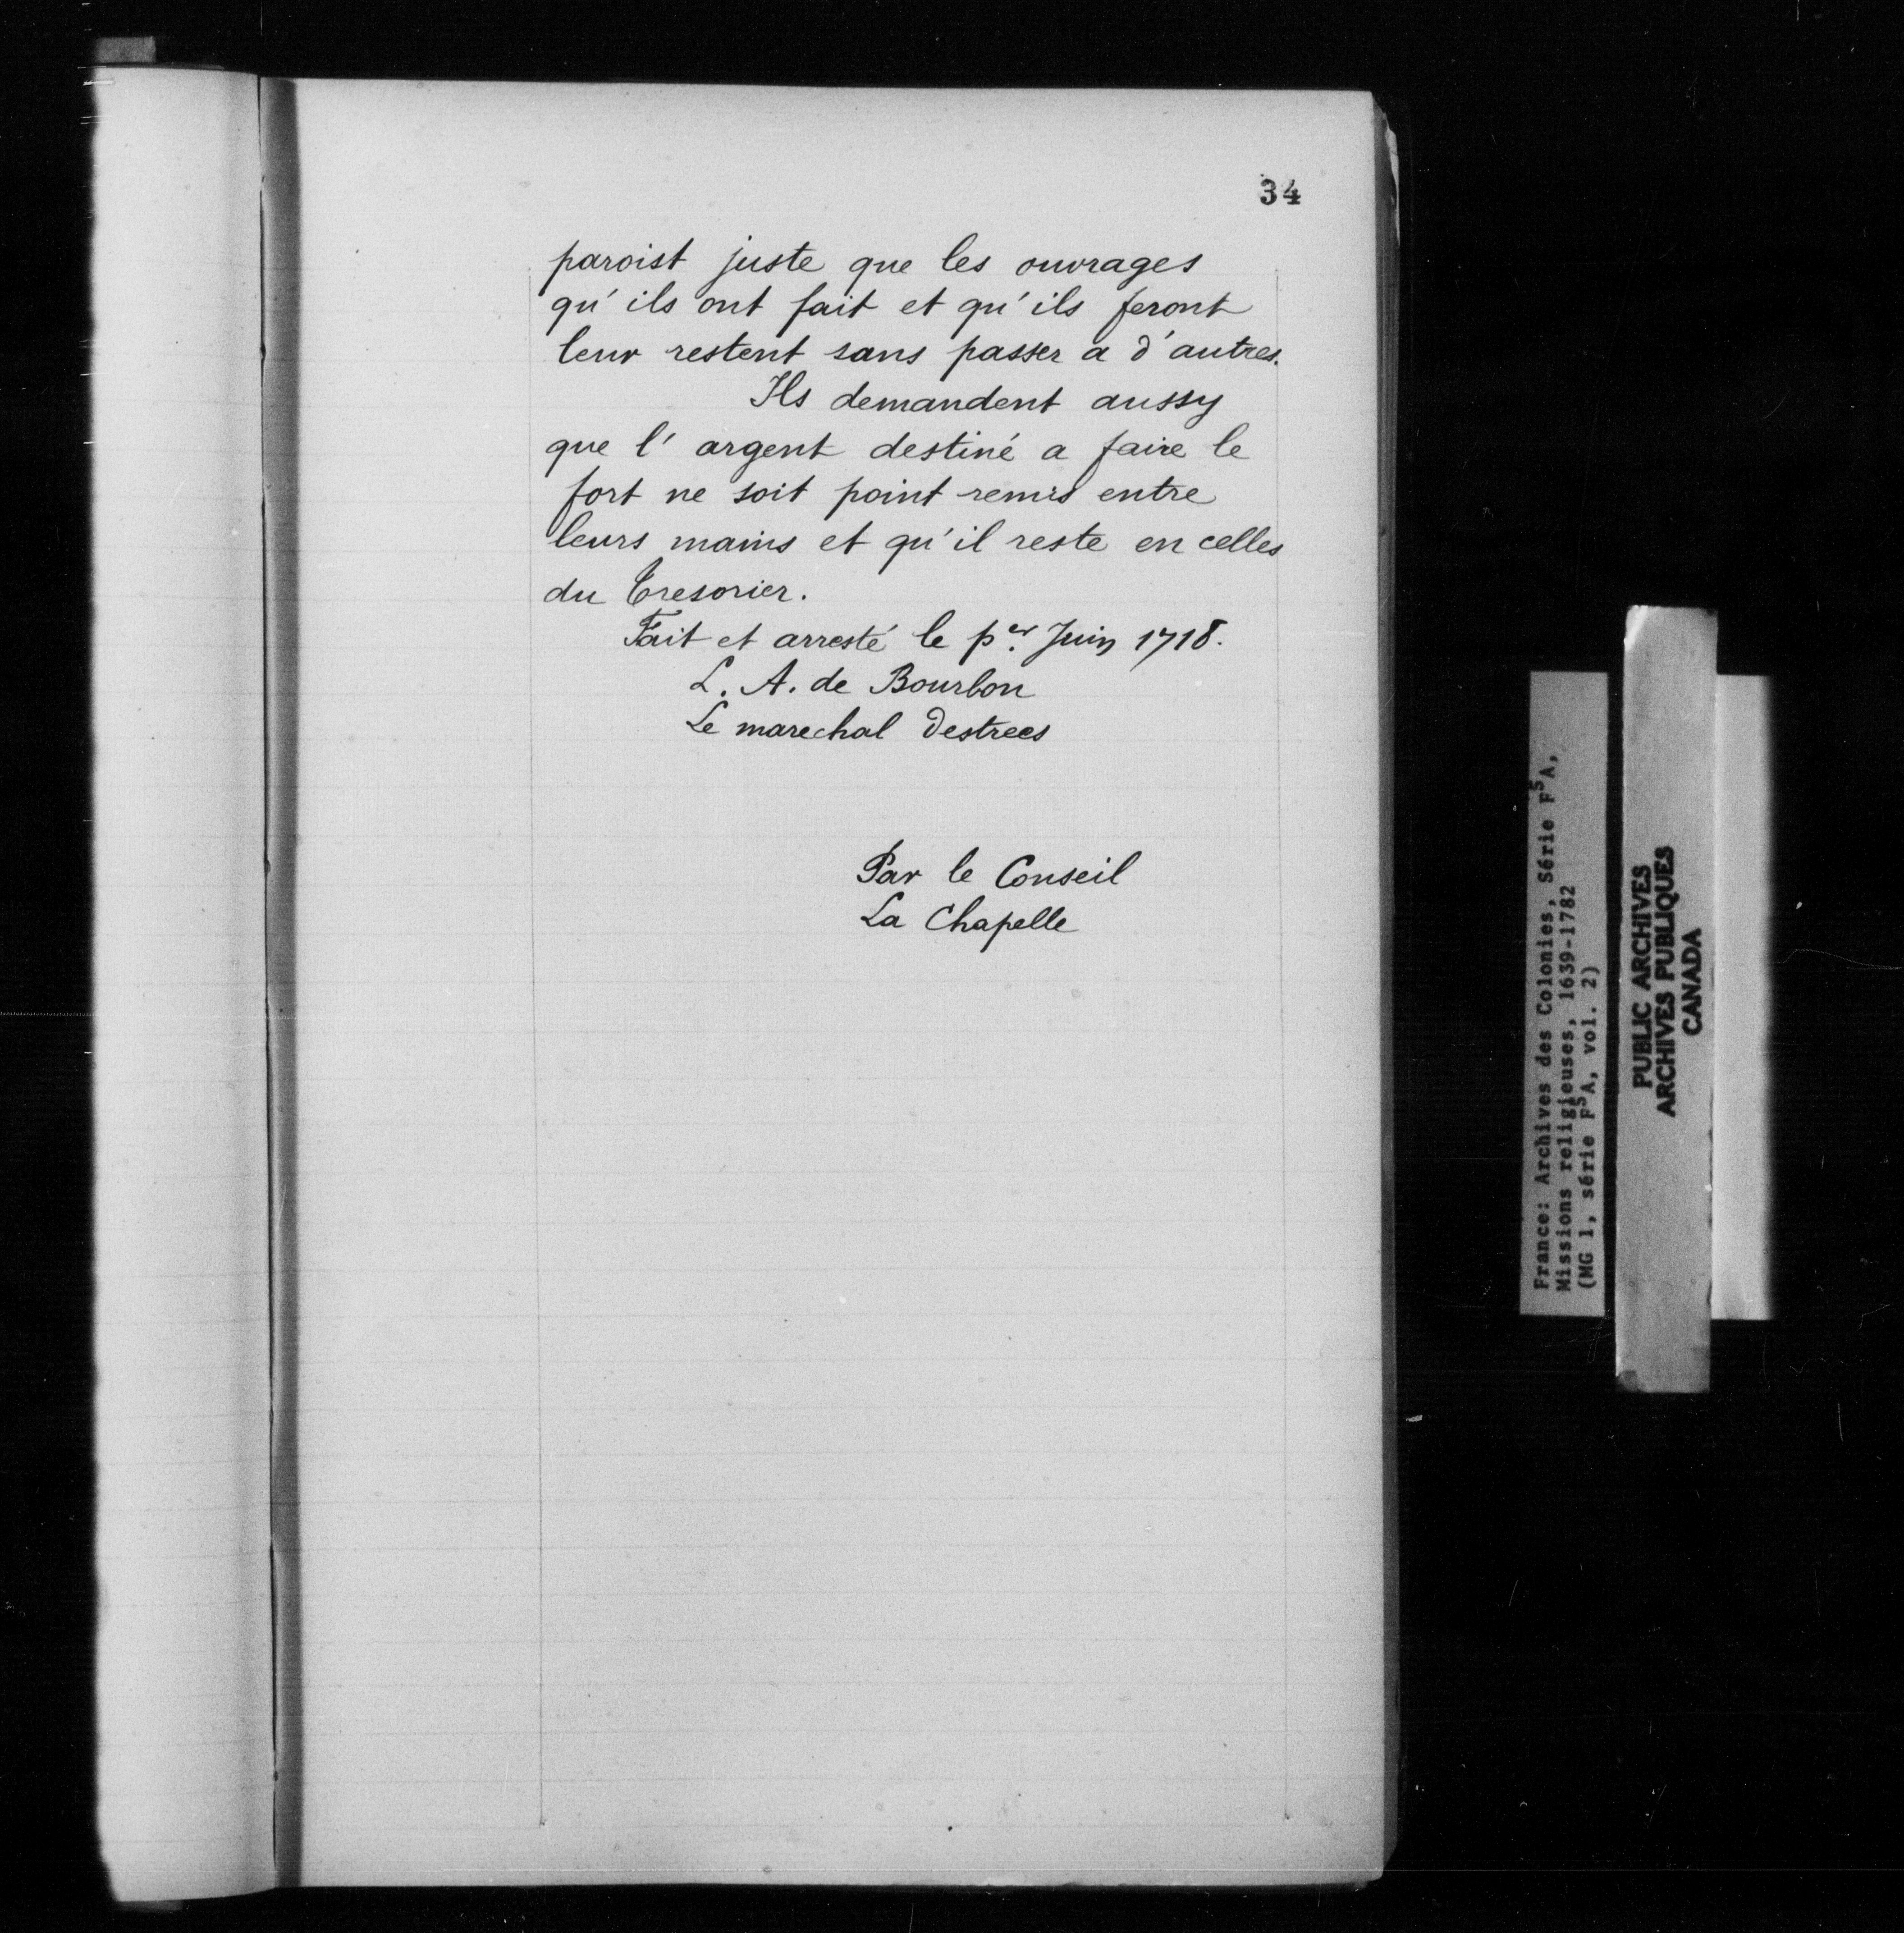 34
paroist juste que les ouvrages
qu'ils ont fait et qu'ils feront
leur restent sans passer a d'autres.
Ils demandent aussy
que l'argent destiné a faire le
fort ne soit point remis entre
leurs mains et qu'il reste en celles
du Tresorier.
Fait et arresté le p.er Juin 1718.
L. A. de Bourbon
Le marechal Destrees
Par le Conseil
La Chapelle
France: Archives des Colonies, Série F5A,
Missions religieuses, 1639-1782
(MG 1, série F5A, vol. 2)
PUBLIC ARCHIVES
ARCHIVES PUBLIQUES
CANADA